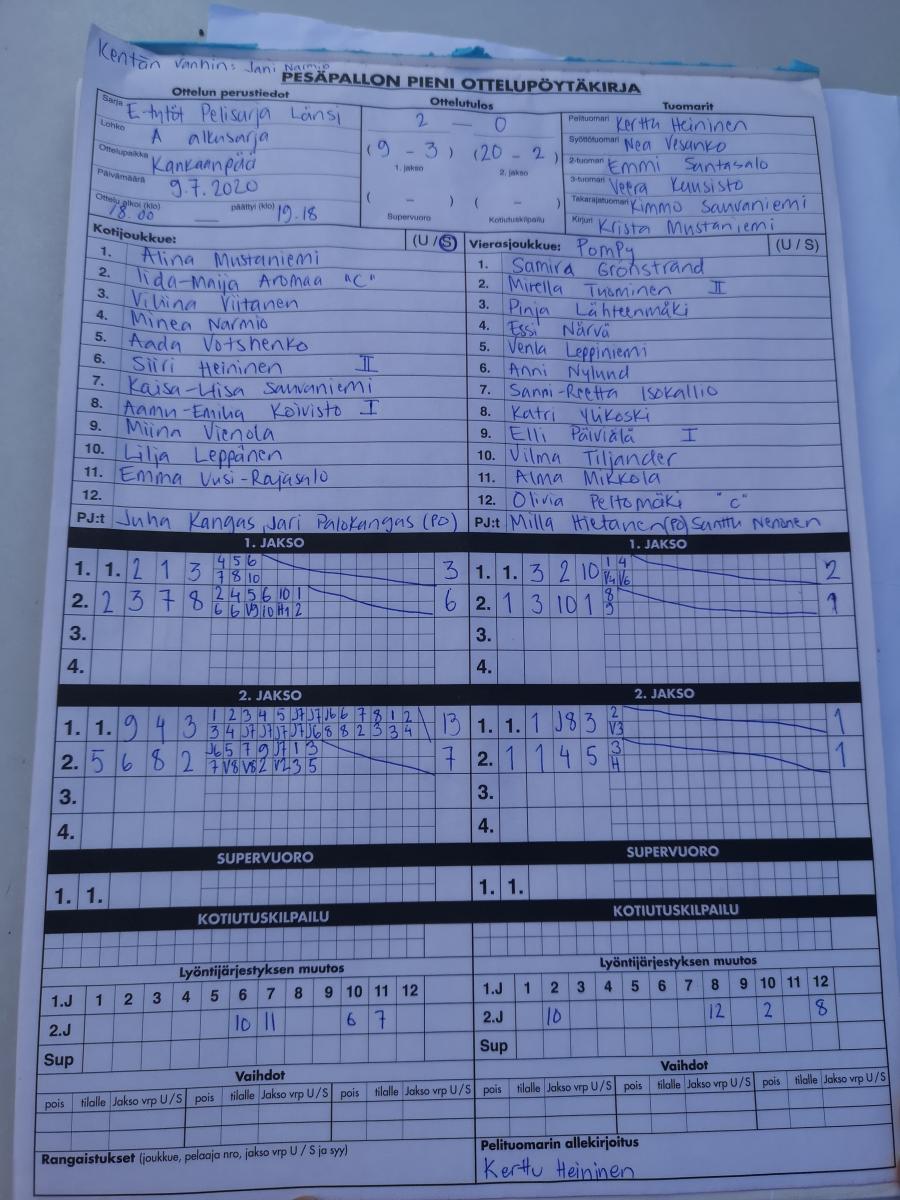 Kentän vanhin: Jani Narmio
PESÄPALLON PIENI OTTELUPÖYTÄKIRJA
Ottelun perustiedot
Sarja E-tytöt Pelisarja Länsi
Lohko A alkusarja
Ottelupaikka Kankaanpää
Päivämäärä 9.7.2020
Ottelu alkoi (klo) 18.00 päättyi (klo) 19.18
Ottelutulos
2 — 0
(9 - 3) (20 - 2)
1. jakso 2. jakso
( - ) ( - )
Supervuoro Kotiutuskilpailu
Tuomarit
Pelituomari Kerttu Heininen
Syöttötuomari Nea Vesanko
2-tuomari Emmi Santasalo
3-tuomari Veera Kuusisto
Takarajatuomari Kimmo Sauvaniemi
Kirjuri Krista Mustaniemi
Kotijoukkue: (U / S)
1. Alina Mustaniemi
2. Iida-Maija Aromaa "C"
3. Vilina Viitanen
4. Minea Narmio
5. Aada Votshenko
6. Siiri Heininen II
7. Kaisa-Liisa Sauvaniemi
8. Aamu-Emilia Koivisto I
9. Miina Vienola
10. Lilja Leppänen
11. Emma Uusi-Rajasalo
12.
PJ:t Juha Kangas, Jari Palokangas (PO)
Vierasjoukkue: PomPy (U / S)
1. Samira Grönstrand
2. Mirella Tuominen II
3. Pinja Lähteenmäki
4. Essi Närvä
5. Venla Leppiniemi
6. Anni Nylund
7. Sanni-Reetta Isokallio
8. Katri Ylikoski
9. Elli Päiviälä I
10. Vilma Tiljander
11. Alma Mikkola
12. Olivia Peltomäki "C"
PJ:t Milla Hietanen (PO) Santtu Nenonen
1. JAKSO
1. 1. 2 1 3 4 5 6 3
7 8 10
2. 2 3 7 8 2 4 5 6 10 1 6
6 6 V9 10 H1 2
3.
4.
1. JAKSO
1. 1. 3 2 10 1 4 2
V4 V6
2. 1 3 10 1 8 1
9
3.
4.
2. JAKSO
1. 1. 9 4 3 1 2 3 4 5 J7 J7 J6 6 7 8 1 2 13
3 4 J7 J7 J7 J7 J6 8 8 2 3 3 4
2. 5 6 8 2 J6 5 7 9 J7 1 3 7
7 V8 V8 2 V2 3 5
3.
4.
2. JAKSO
1. 1. 1 J8 3 2 1
V3
2. 1 1 4 5 3 1
H
3.
4.
SUPERVUORO
1. 1.
SUPERVUORO
1. 1.
KOTIUTUSKILPAILU
KOTIUTUSKILPAILU
Lyöntijärjestyksen muutos
1.J 1 2 3 4 5 6 7 8 9 10 11 12
2.J 10 11 6 7
Sup
Lyöntijärjestyksen muutos
1.J 1 2 3 4 5 6 7 8 9 10 11 12
2.J 10 12 2 8
Sup
Vaihdot
pois tilalle Jakso vrp U / S pois tilalle Jakso vrp U / S pois tilalle Jakso vrp U / S
Vaihdot
pois tilalle Jakso vrp U / S pois tilalle Jakso vrp U / S pois tilalle Jakso vrp U / S
Rangaistukset (joukkue, pelaaja nro, jakso vrp U / S ja syy)
Pelituomarin allekirjoitus
Kerttu Heininen